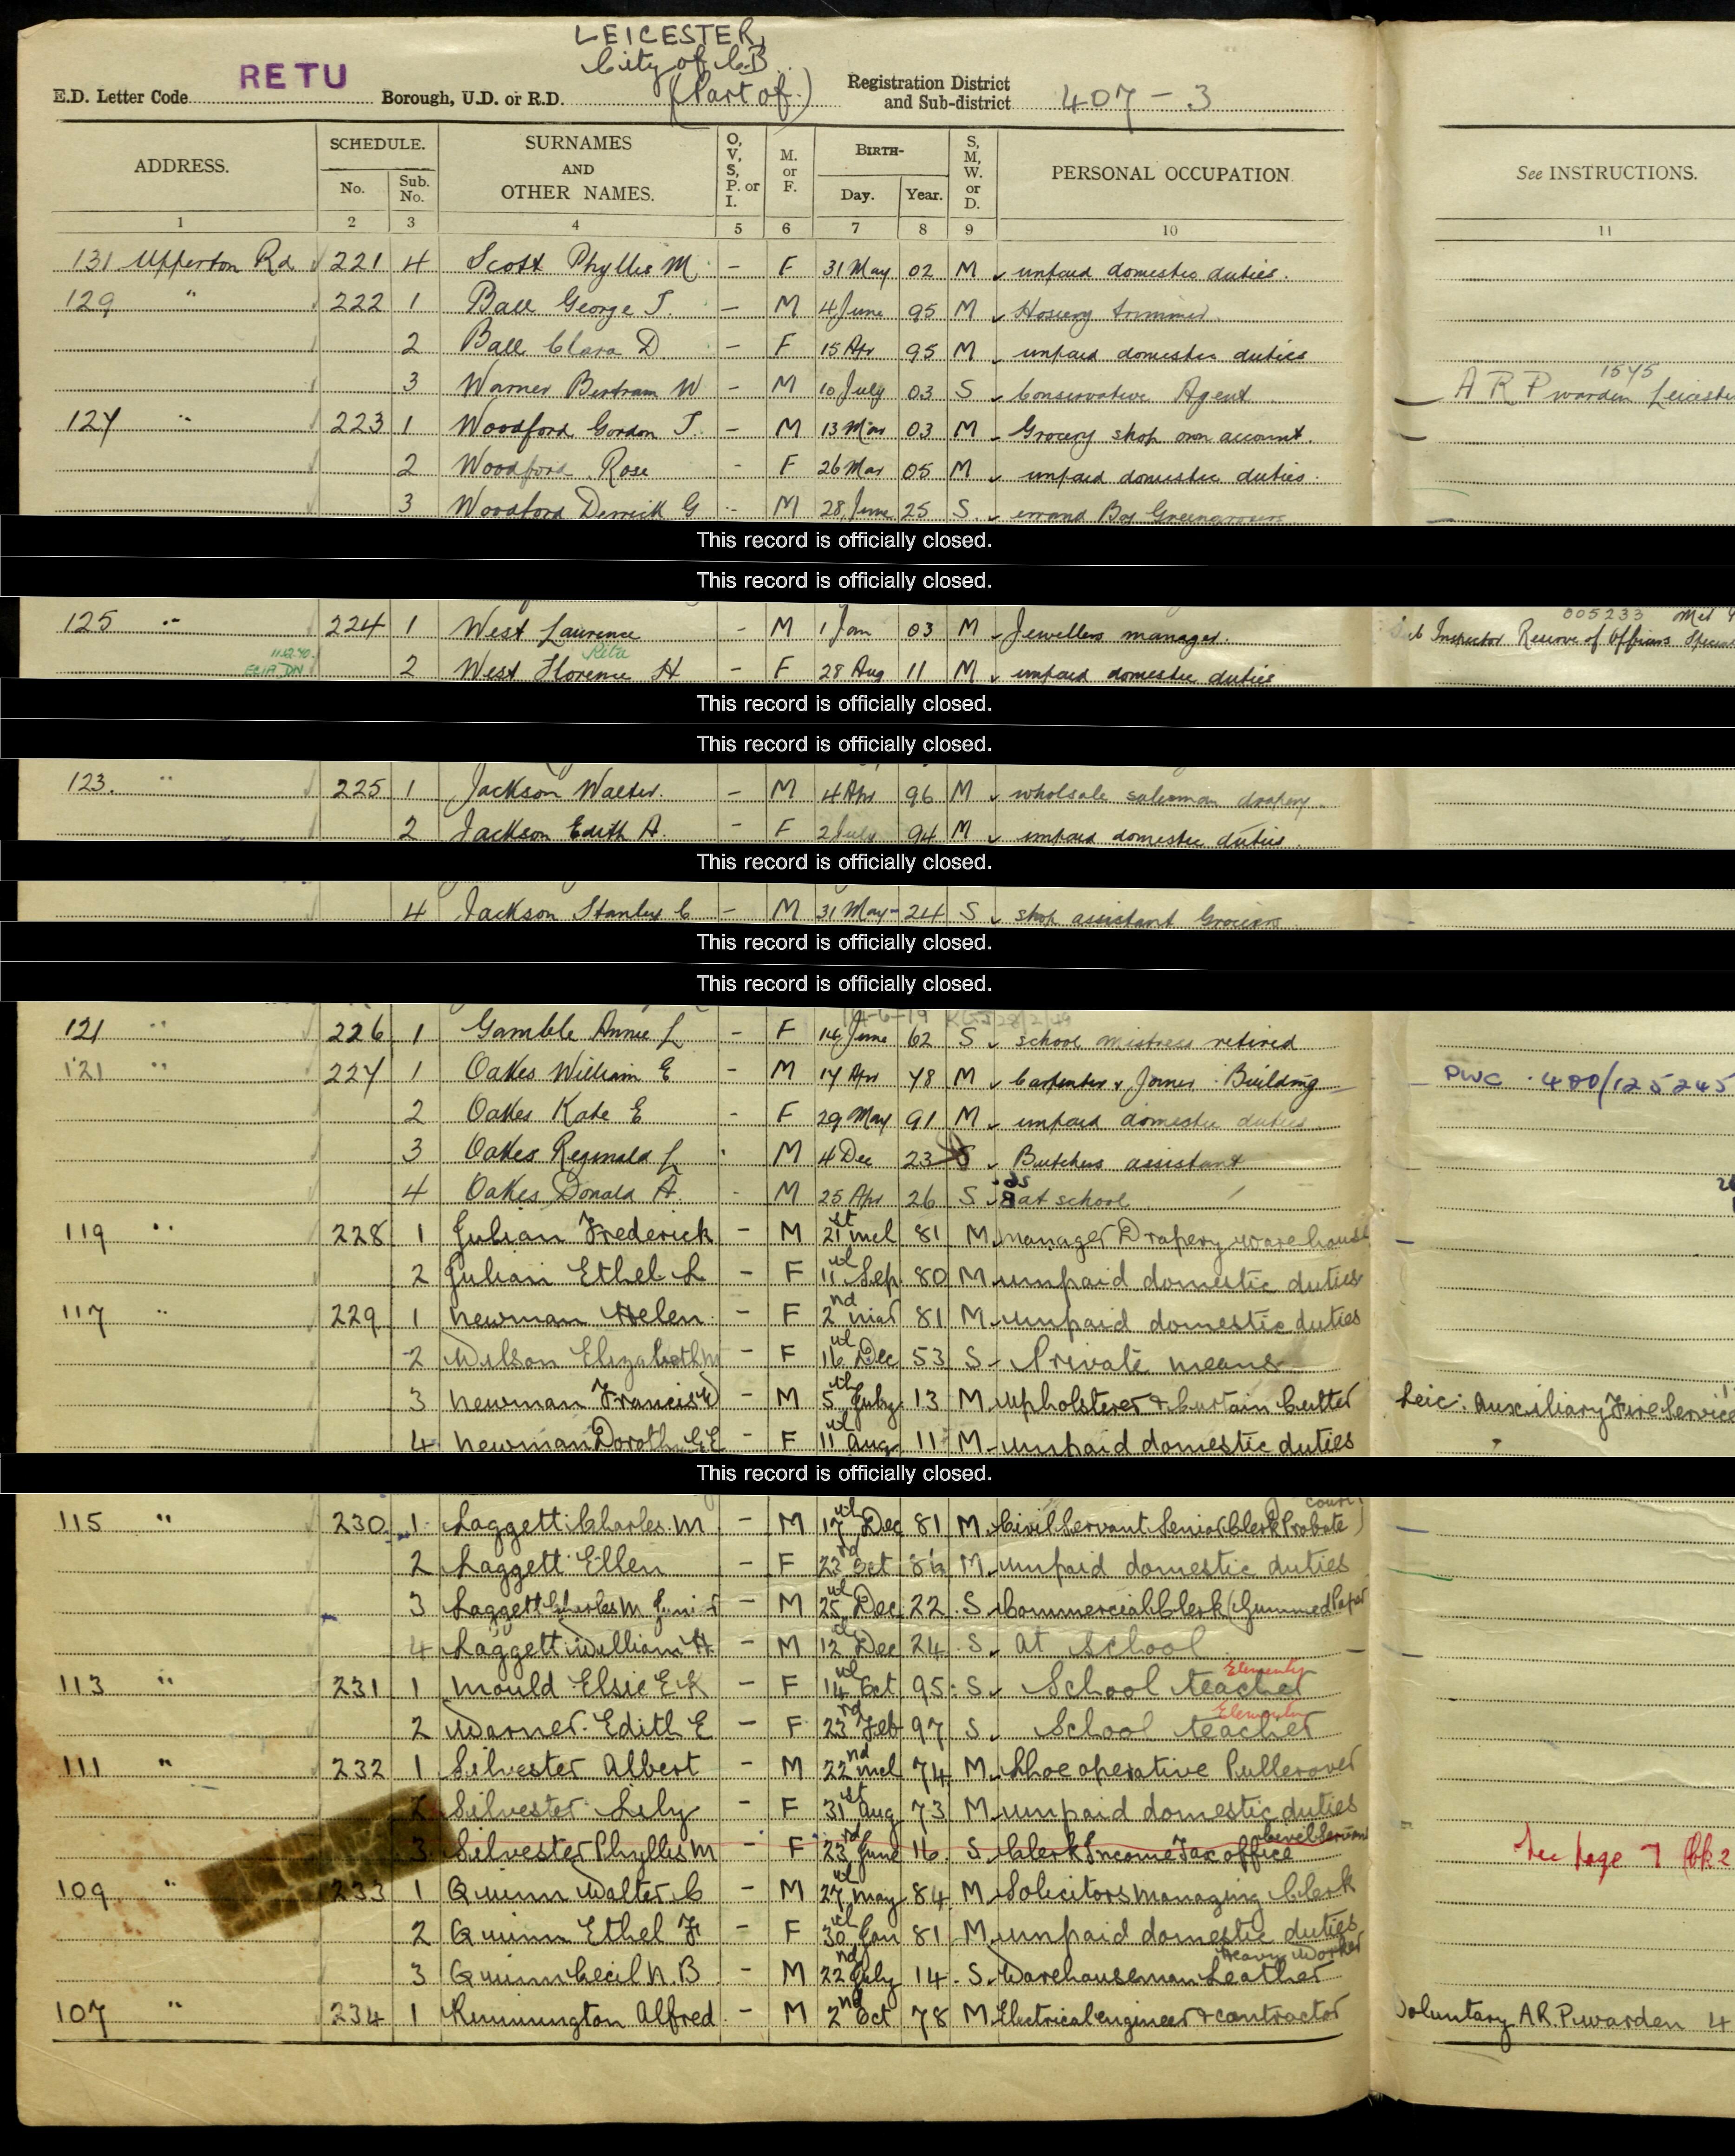 LEICESTER,
City of C.B.
RETU
(Part of)
E.D. Letter Code Borough, U.D. or R.D. Registration District and Sub-district 407-3
ADDRESS. SCHEDULE. No. Sub. No. SURNAMES AND OTHER NAMES. O, V, S, P. or I. M. or F. BIRTH- Day. Year. S, M, W. or D. PERSONAL OCCUPATION. See INSTRUCTIONS.
1 2 3 4 5 6 7 8 9 10 11
131 Upperton Rd 221 4 Scott Phyllis M. - F 31 May 02 M unpaid domestic duties.
129 " 222 1 Ball George T. - M 4 June 95 M Hosiery trimmer
2 Ball Clara D - F 15 Apr 95 M unpaid domestic duties
3 Warner Bertram W - M 10 July 03 S Conservative Agent A R P warden 1575
127 " 223 1 Woodford Gordon T. - M 13 Mar 03 M Grocery shop own account.
2 Woodford Rose - F 26 Mar 05 M unpaid domestic duties.
3 Woodford Derrick G - M 28 June 25 S. errand Boy Greengrocers
This record is officially closed.
This record is officially closed.
125 " 224 1 West Laurence - M 1 Jan 03 M Jewellers manager. 005233 Sub Inspector Reserve of Officers
2 West Florence Rita H - F 28 Aug 11 M unpaid domestic duties
This record is officially closed.
This record is officially closed.
123. " 225 1 Jackson Walter. - M 4 Apr 96 M wholesale salesman drapery.
2 Jackson Edith A. - F 2 July 94 M unpaid domestic duties.
This record is officially closed.
4 Jackson Stanley C - M 31 May 24 S shop assistant Grocers
This record is officially closed.
This record is officially closed.
121 " 226 1 Gamble Annie L - F 14 June 62 S school mistress retired
121 " 227 1 Oakes William E - M 17 Apr 78 M Carpenter & Joiner Building PWC 480/125245
2 Oakes Kate E - F 29 May 91 M unpaid domestic duties
3 Oakes Reginald L M 4 Dec 23 S Butchers assistant
4 Oakes Donald A. - M 25 Apr 26 S at school
119 " 228 1 Julian Frederick - M 21st Mch 81 M manager Drapery warehouse
2 Julian Ethel L - F 11th Sep. 80 M unpaid domestic duties
117 " 229 1 Newman Helen - F 2nd Mar 81 M unpaid domestic duties
2 Wilson Elizabeth M - F 16th Dec 53 S Private means
3 Newman Francis W - M 5th July 13 M Upholsterer & Curtain Cutter Leic: Auxiliary Fire Service
4 Newman Dorothy G E - F 11th Aug 11 M unpaid domestic duties
This record is officially closed.
115 " 230 1 Laggett Charles. M - M 17th Dec 81 M Civil Servant Senior Clerk (Probate Court)
2 Laggett Ellen - F 23rd Oct M unpaid domestic duties
3 Laggett Charles M Junior - M 25th Dec 22 S Commercial Clerk (Gummed Paper
4 Laggett William H. - M 12th Dec 24 S. at school
113 " 231 1 Mould Elsie E K - F 14th Oct 95 S School teacher Elementy
2 Warner. Edith E - F 23rd Feb 97 S School teacher
111 " 232 1 Silvester Albert - M 22nd Mch 74 M Shoe operative Pullerover
2 Silvester Lily - F 31st Aug 73 M unpaid domestic duties
3 Silvester Phyllis M - F 23rd June 16 S. Clerk Income Tax office Civil Servant See page 7
109 " 233 1 Quinn Walter C - M 27th May 84 M Solicitors managing Clerk
2 Quinn Ethel F - F 30th Jan 81 M unpaid domestic duties
3 Quinn Cecil N. B - M 22nd July 14 S. Warehouseman Leather Heavy Worker
107 " 234 1 Kinnington Alfred - M 2nd Oct 78 M Electrical engineer & contractor Voluntary A.R.P. warden 4